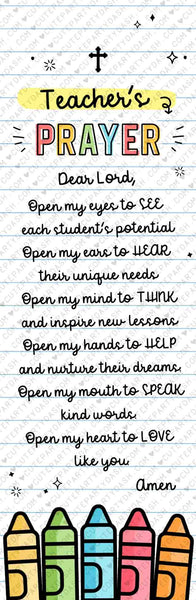 Teacher's
PRAYER
Dear Lord,
Open my eyes to SEE
each student's potential
Open my ears to HEAR
their unique needs
Open my mind to THINK
and inspire new lessons
Open my hands to HELP
and nurture their dreams.
Open my mouth to SPEAK
kind words.
Open my heart to LOVE
like you.
Amen